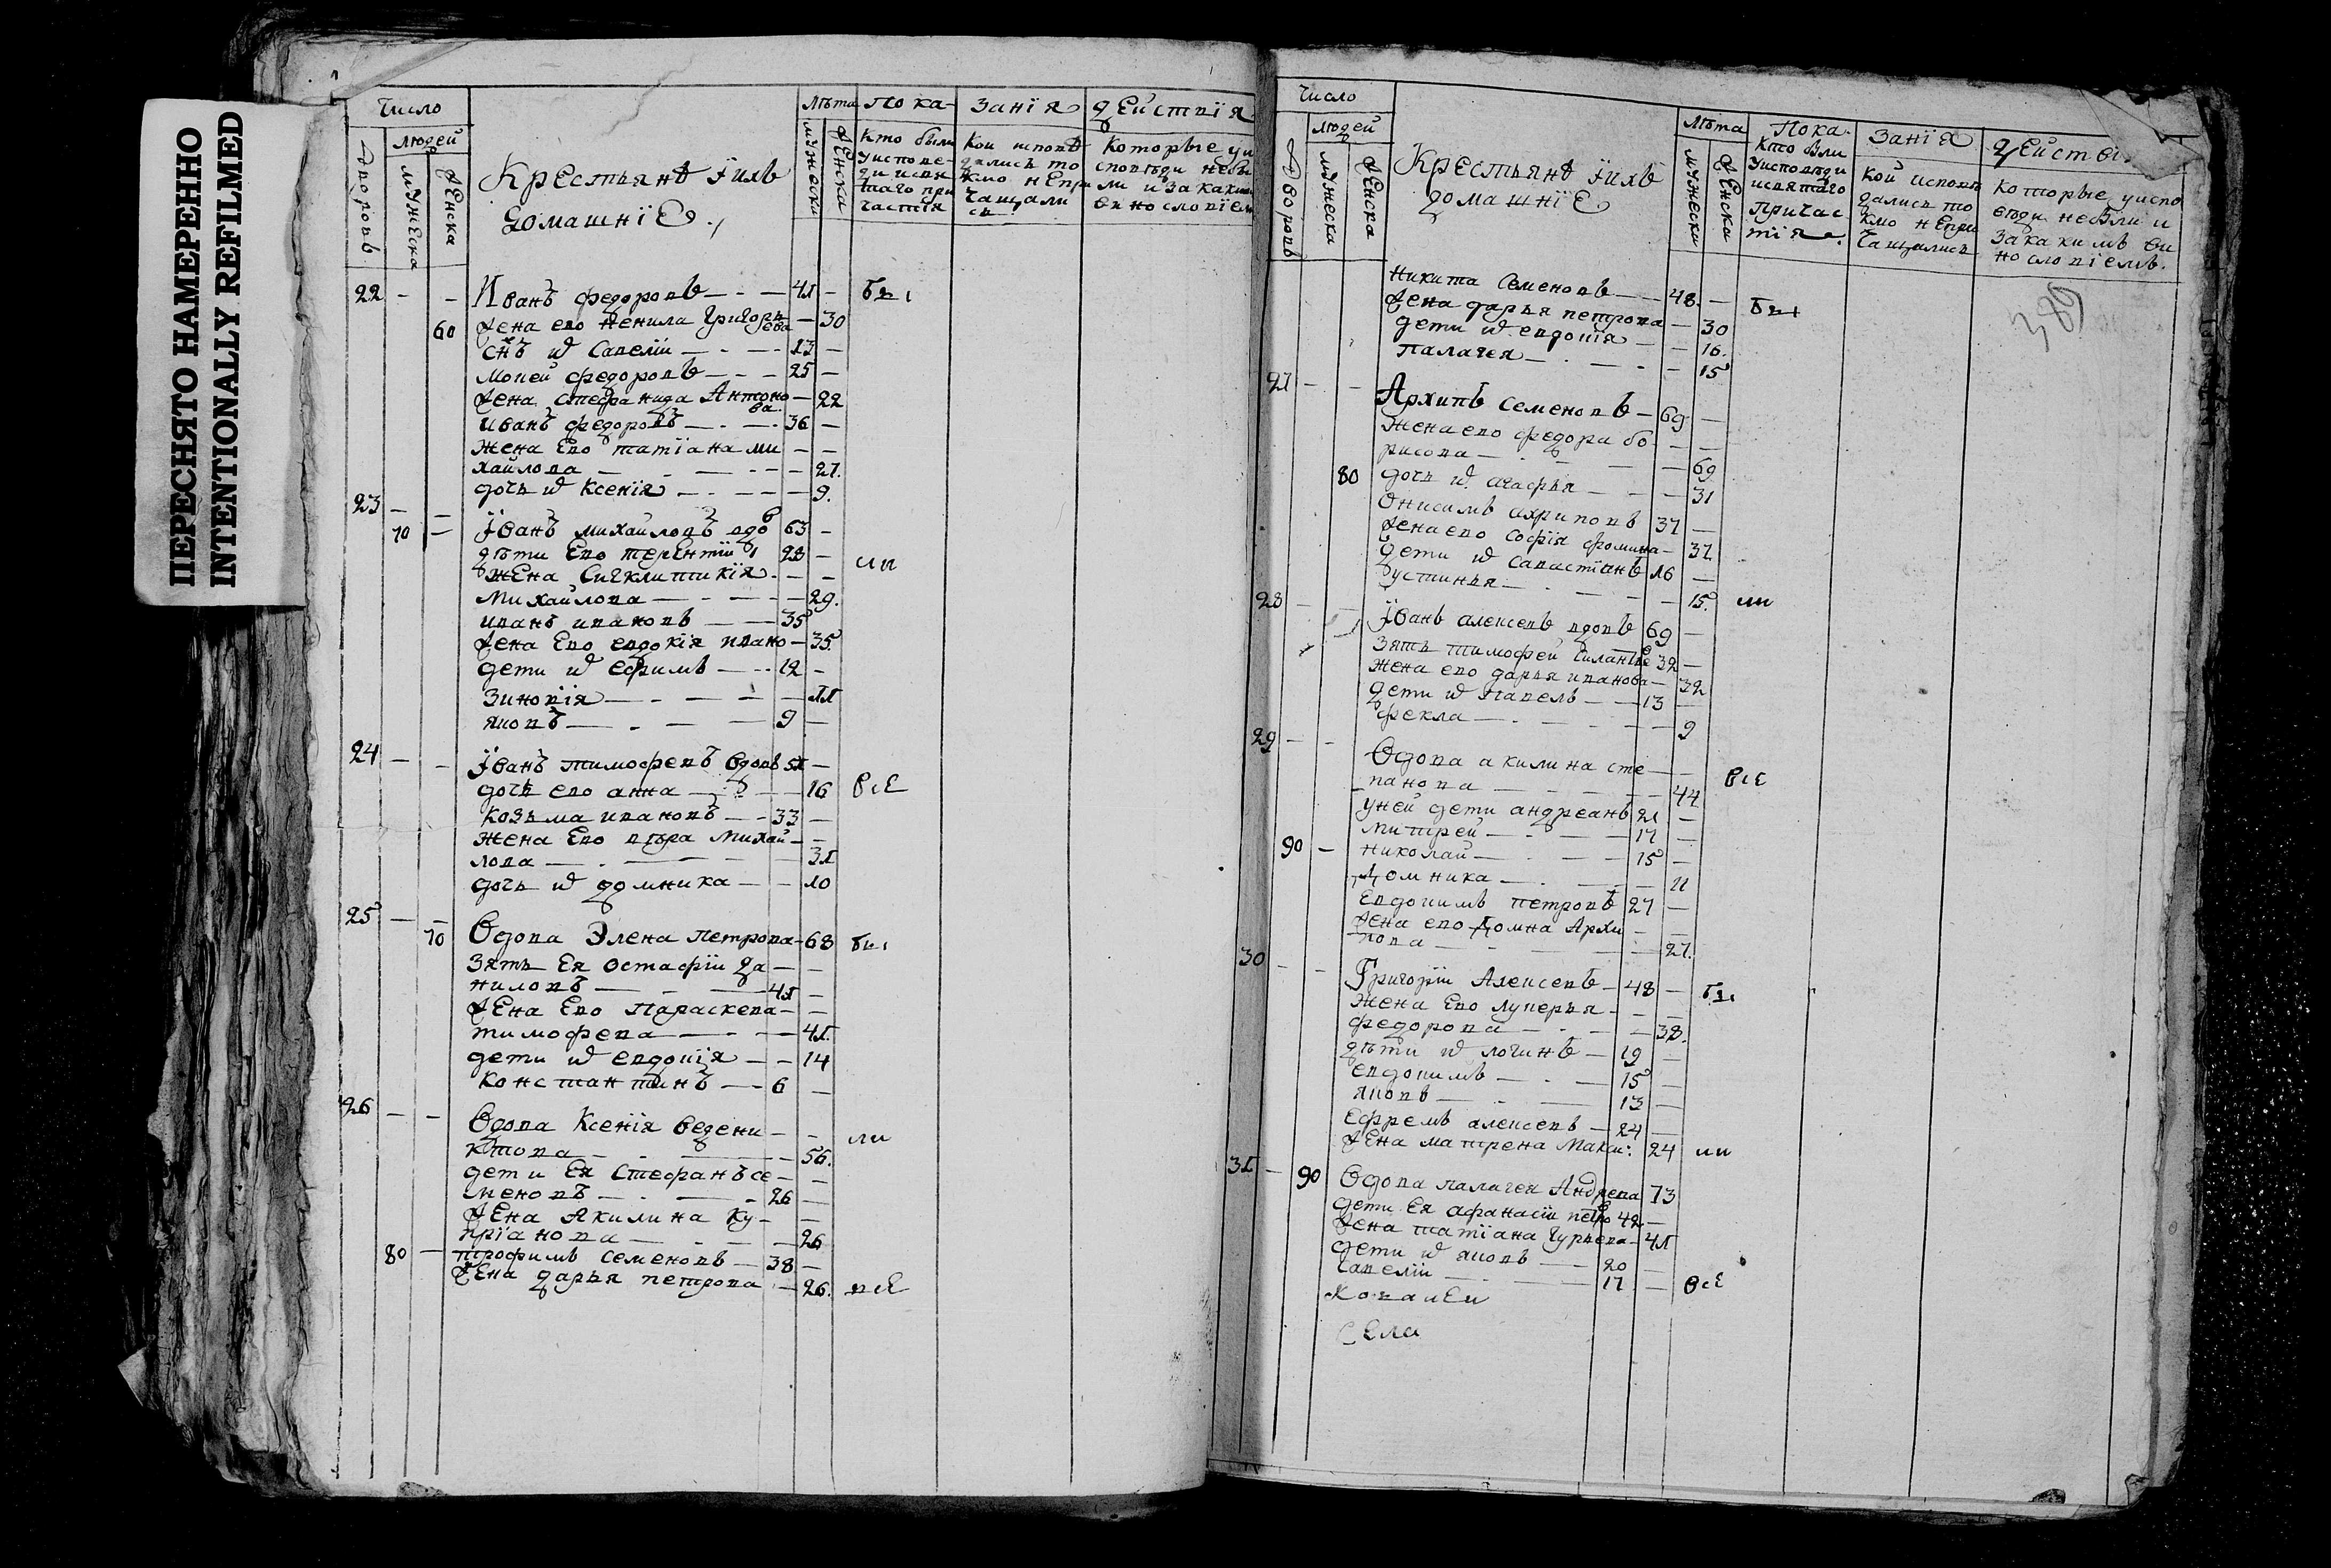 ПЕРЕСНЯТО НАМЕРЕННО
INTENTIONALLY REFILMED
Число
людей
дворовъ
мужеска
женска
Крестьянѣ їихъ
домашнїе
лѣта
мужески
женска
Пока-
занїя
действїя
Кто были
уисповѣ-
ди исвя
таго при
частїя
Кои исповѣ
дались то
кмо непри
чащали
сь
Которые уи
сповѣди небы
ли изакаким
винословїем
22 - - Иванъ федоровъ - - - 41 - бы
60 жена ево ненила Григорьева - 30
снъ ѿ Савелїи - - - 13 -
Мокей федоровъ - - - 25 -
жена стефанида Антонова - 22
иванъ федоровъ - - - 36 -
жена Ево татїана ми - -
хайлова - - - 27.
дочь ѿ Ксенїя - - - 9.
23 - -
70 - Їванъ михайловъ вдов 63 -
дѣти Ево терентїи 28 - ли
жена Сигклитикїя - -
Михайлова - - - 29.
иванъ ивановъ - - 35
жена Ево евдокїя ивано - 35.
дети ѿ ефимъ - - 12 -
Зиновїя - - - 11
яковъ - - - 9 -
24 - - Їванъ тимофеевъ вдовъ 51 -
дочь ево анна - - - 16 всЕ
козьма ивановъ - - 33 -
жена Ево вѣра Михай - -
лова - - - 31
дочь ѿ домника - - 10
25 - -
70 Вдова Элена петрова - 68 бы
зять Ея Остафїи да - -
ниловъ - - - 41 -
жена Ево Параскева - -
тимофева - - - 41.
дети ѿ евдокїя - - 14
Константинъ - - 6 -
26 - - Вдова Ксенїя ведени - - ли
ктова - - - 56.
дети Ея Стефанъ се - -
меновъ - - - 26 -
жена Акилина Ку - -
прїанова - - - 26
80 - трофимъ семеновъ - 38 -
жена дарья петрова - 26. всЕ
Число
людей
дворовъ
мужеска
женска
Крестьянѣ їихъ
домашнїе
лѣта
мужески
женска
Пока-
занїя
Кто были
уисповѣди
исвятаго
причас
тїя
Кои исповѣ
дались то
кмо непри
чащались
Которые уиспо
вѣди небыли и
закакимъ ви
нословїемъ.
389
Никита Семеновъ - - 48. - бы
жена дарья петрова - 30
дети ѿ евдокїя - - 16.
палагея - - - 15
27 - - Архипъ семеновъ - 69 -
жена ево федора бо - -
рисова - - - 69
80 дочь ѿ агафья - - - 31
Онисимъ архиповъ 37 -
жена ево софїя фомина - 37
дети ѿ Савастїянъ 16 -
устинья - - - 15. ли
28 - - Їванъ алексевъ вдовъ 69 -
зять тимофей силантьев 32 -
жена ево дарья иванова - 32
дети ѿ павелъ - - 13 -
фекла - - - 9
29 - - Вдова акилина сте - - всЕ
панова - - - 44
уней дети андреанъ 21 -
митрей - - - 17 -
90 - николай - - - 15 -
Домника - - - 11
Евдокимъ петровъ 27 -
жена ево Домна Архи - -
пова - - - 27.
30 - - Григорїи Алексевъ - 48 - бы
жена Ево лукерья - - -
федорова - - - 38.
дѣти ѿ логинъ - 19 -
евдокимъ - - - 15 -
яковъ - - - 13 -
ефремъ алексевъ - 24 -
жена матрена Макси: 24 ли
31 - 90 Вдова палагея Андрева 73
дети Ея афанасїи петров 42 -
жена татїана гурьева - 41
дети ѿ яковъ - - 20 -
савелїи - - - 17 - всЕ
Села